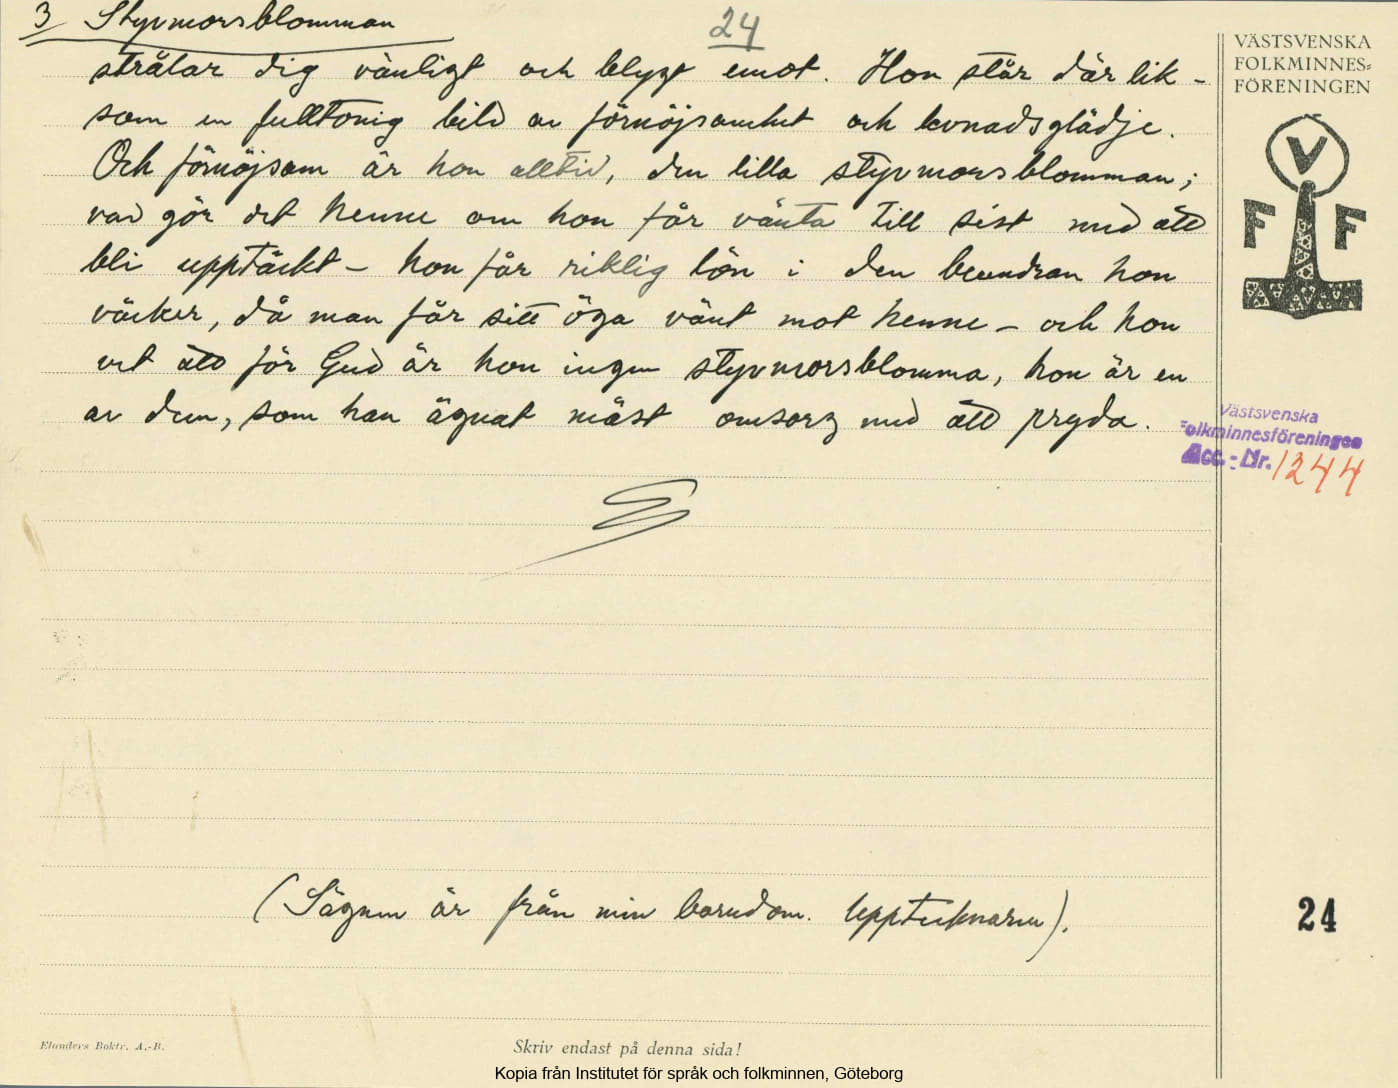 3 Styvmorsblomman
24
strålar dig vänligt och blygt emot. Hon står där lik-
som en fulltonig bild av förnöjsamhet och levnadsglädje.
Och förnöjsam är hon alltid, den lilla styvmorsblomman;
vad gör det henne om hon får vänta till sist med att
bli upptäckt – hon får riklig lön i den beundran hon
väcker, då man får sitt öga vänt mot henne – och hon
vet att för Gud är hon ingen styvmorsblomma, hon är en
av dem, som han ägnat mäst omsorg med att pryda.
(Sägnen är från min barndom. Upptecknaren).
VÄSTSVENSKA
FOLKMINNES-
FÖRENINGEN
V
F F
Västsvenska
Folkminnesföreningen
Acc.-Nr. 1244
24
Elanders Boktr. A.-B.
Skriv endast på denna sida!
Kopia från Institutet för språk och folkminnen, Göteborg